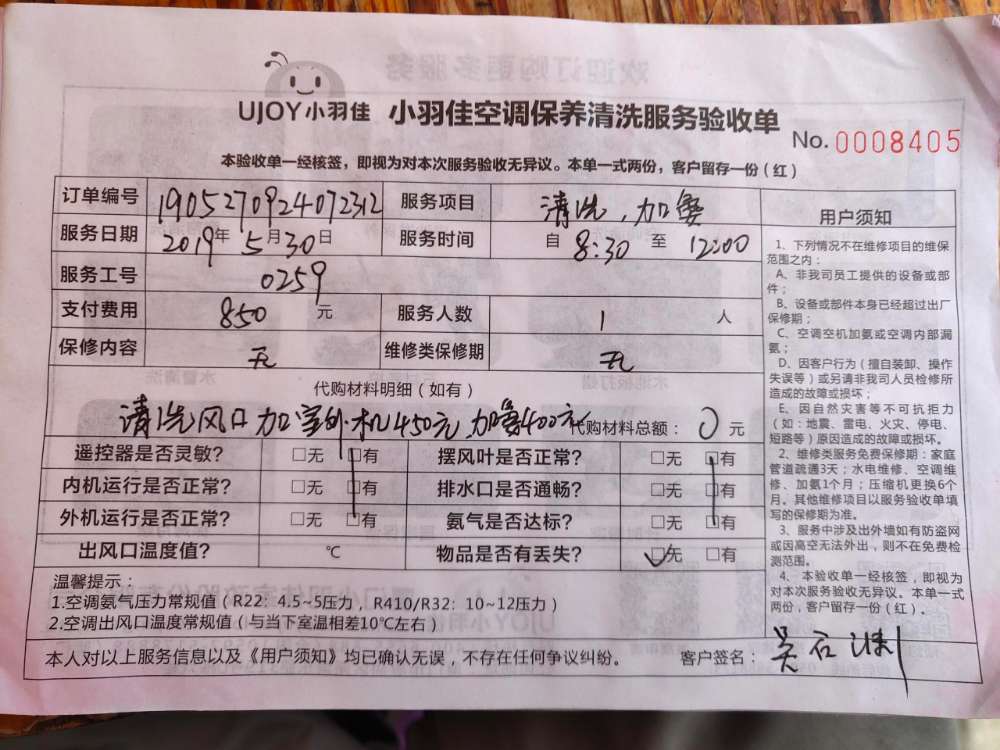 UJOY小羽佳 小羽佳空调保养清洗服务验收单
No. 0008405
本验收单一经核签，即视为对本次服务验收无异议。本单一式两份，客户留存一份（红）
订单编号 1905270924072312 服务项目 清洗，加氨
服务日期 2019年5月30日 服务时间 自 8:30 至 12:00
服务工号 0259
支付费用 850 元 服务人数 1 人
保修内容 无 维修类保修期 无
代购材料明细（如有）
清洗风口加室外机450元，加氨400元 代购材料总额：0 元
遥控器是否灵敏? □无 □有 摆风叶是否正常? □无 □有
内机运行是否正常? □无 □有 排水口是否通畅? □无 □有
外机运行是否正常? □无 □有 氨气是否达标? □无 □有
出风口温度值? ℃ 物品是否有丢失? □无 □有
温馨提示：
1.空调氨气压力常规值（R22：4.5~5压力，R410/R32：10~12压力）
2.空调出风口温度常规值（与当下室温相差10℃左右）
用户须知
1、下列情况不在维修项目的维保
范围之内：
A、非我司员工提供的设备或部
件；
B、设备或部件本身已经超过出厂
保修期；
C、空调空机加氨或空调内部漏
氨；
D、因客户行为（擅自装卸、操作
失误等）或另请非我司人员检修所
造成的故障或损坏；
E、因自然灾害等不可抗拒力
（如：地震、雷电、火灾、停电、
短路等）原因造成的故障或损坏。
2、维修类服务免费保修期：家庭
管道疏通3天；水电维修、空调维
修、加氨1个月；压缩机更换6个
月。其他维修项目以服务验收单填
写的保修期为准。
3、服务中涉及出外墙如有防盗网
或因高空无法外出，则不在免费检
测范围。
4、本验收单一经核签，即视为
对本次服务验收无异议。本单一式
两份，客户留存一份（红）。
本人对以上服务信息以及《用户须知》均已确认无误，不存在任何争议纠纷。 客户签名：吴石